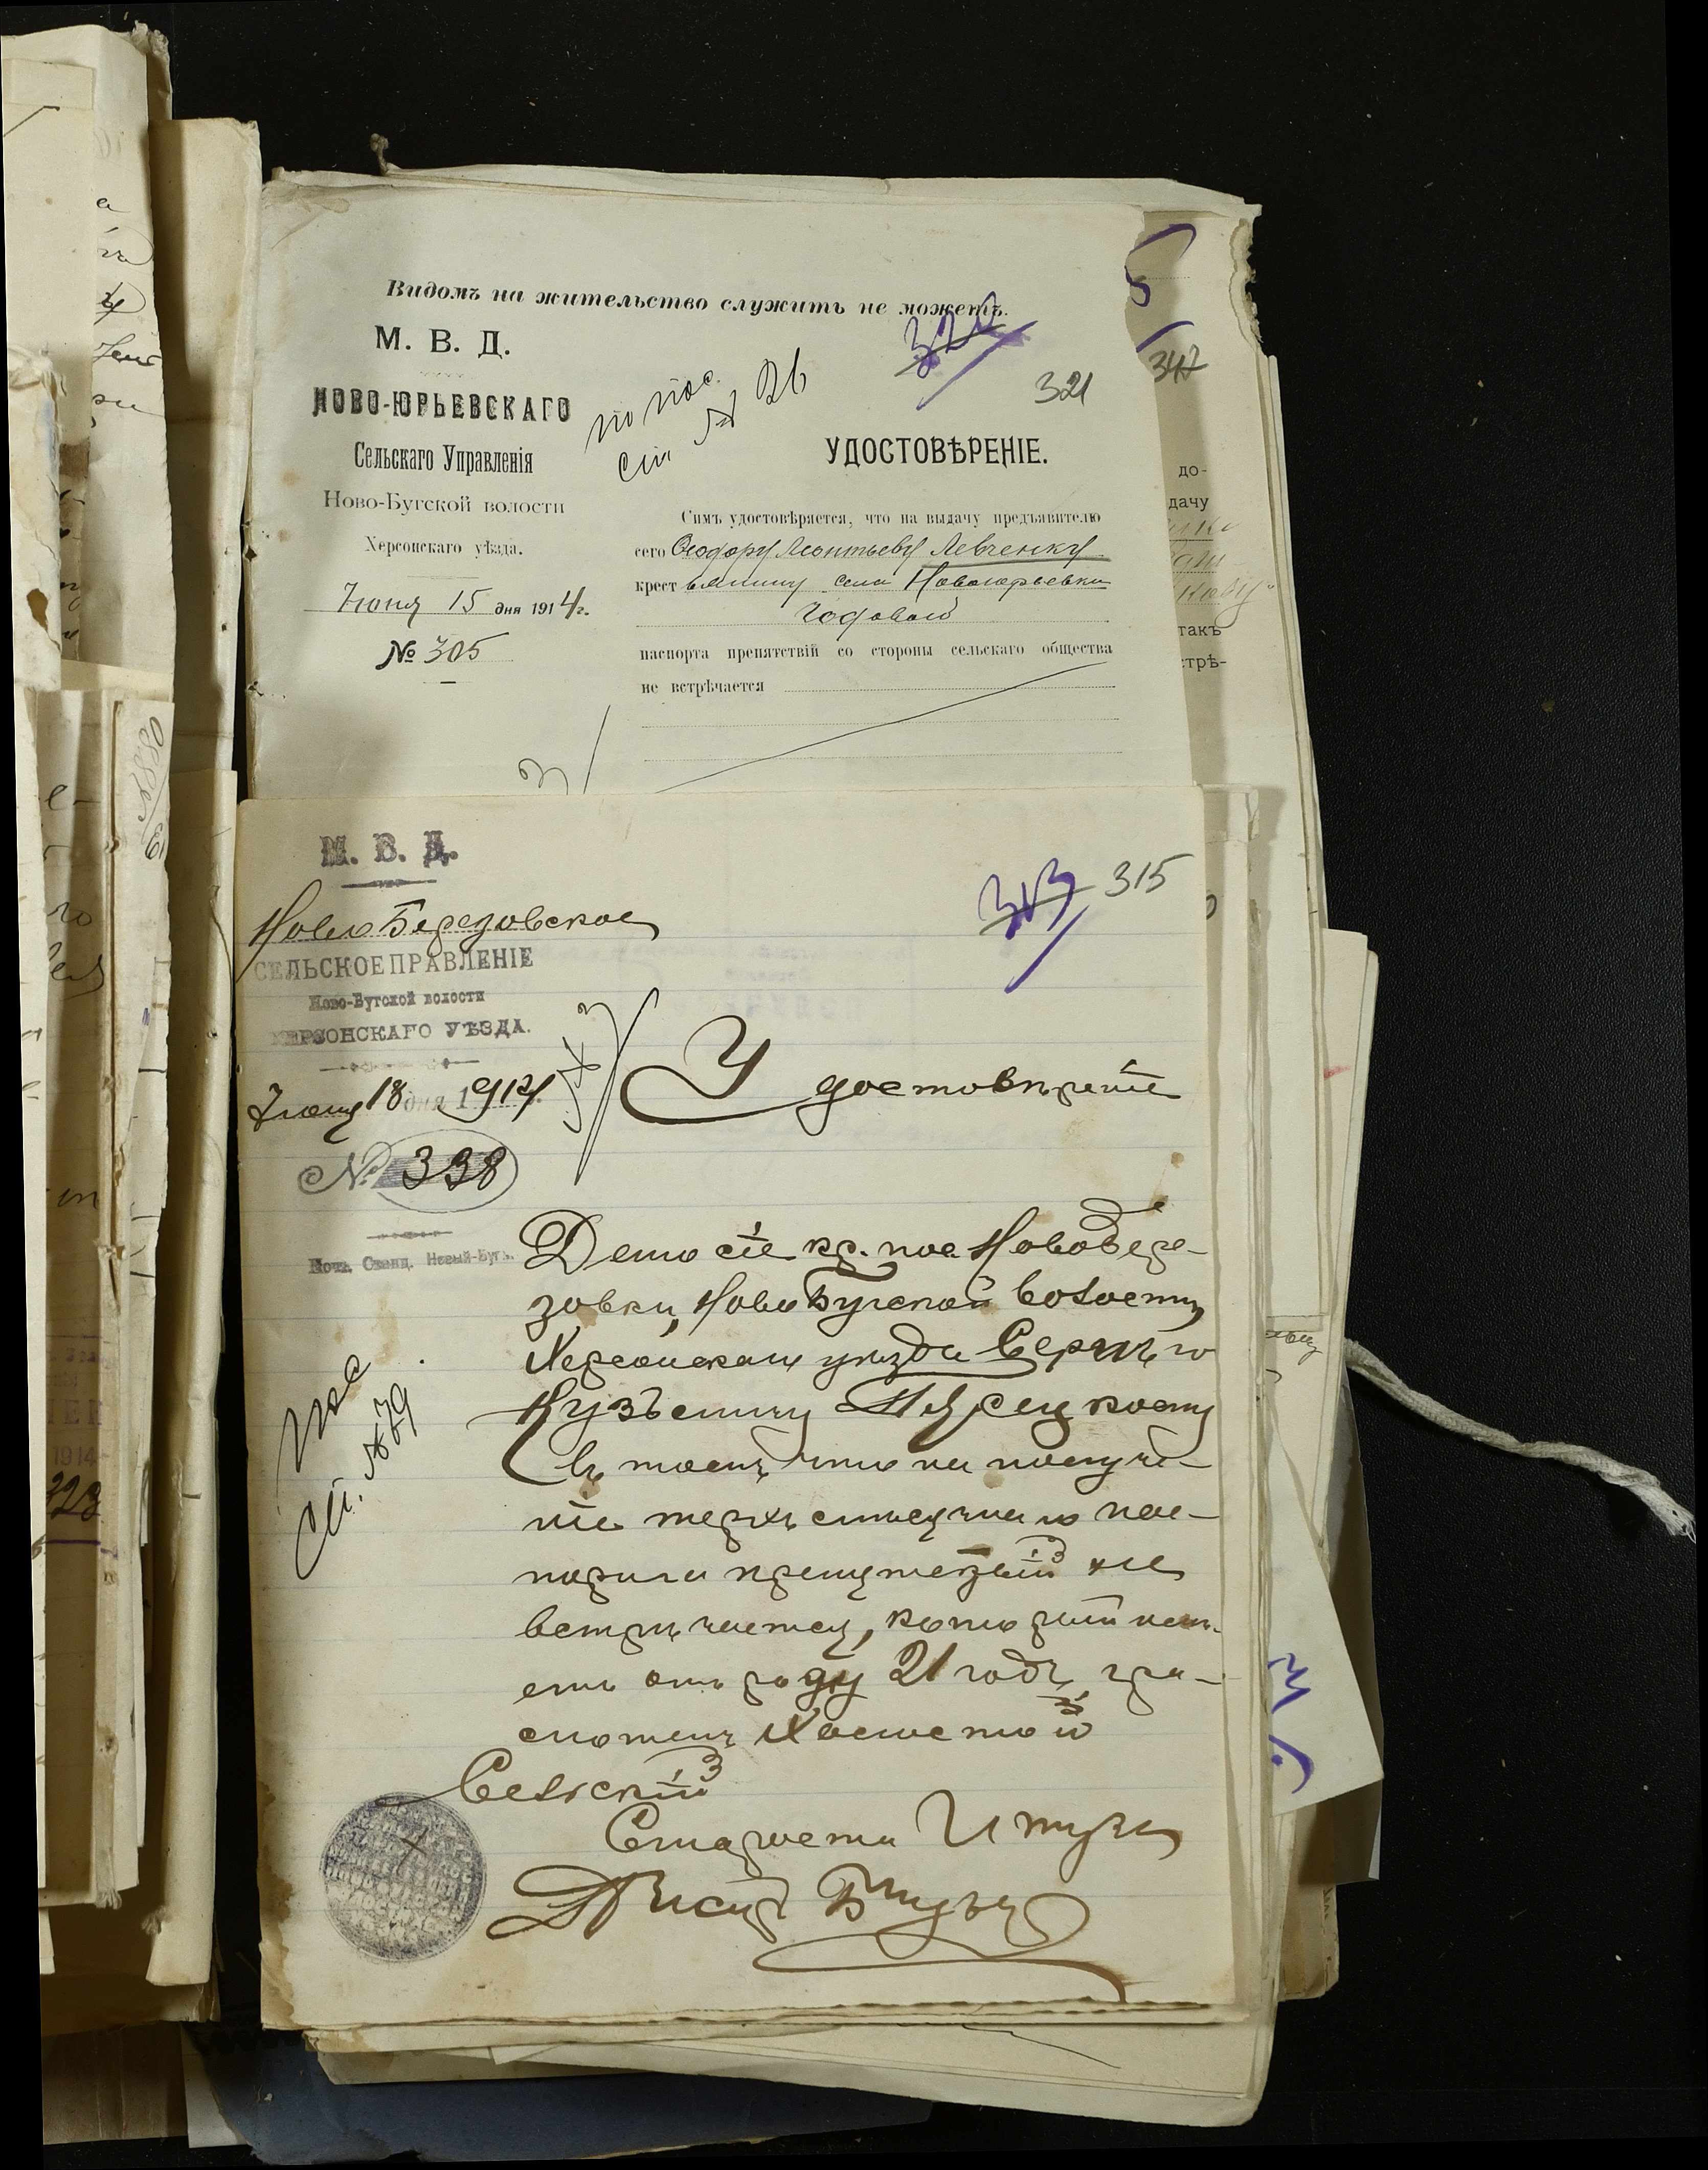 Видомъ на жительство служить не можетъ.
М. В. Д.
НОВО-ЮРЬЕВСКАГО
Сельскаго Управленія
Ново-Бугской волости
Херсонскаго уѣзда.
Іюня 15 дня 1914 г.
№ 305
по пос.
320
321
347
УДОСТОВѢРЕНІЕ.
Симъ удостовѣряется, что на выдачу предъявителю
сего Ѳеодору Леонтьеву Левченку
крестьянину села Новоюрьевки
годовой
паспорта препятствій со стороны сельскаго общества
не встрѣчается
до-
дачу
такъ
стрѣ-
М. В. Д.
Ново Березовское
СЕЛЬСКОЕ ПРАВЛЕНІЕ
Ново-Бугской волости
ХЕРСОНСКАГО УѢЗДА.
Іюня 18 дня 1914 г.
№ 338
Почт. Станц. Новый-Бугъ.
313
315
Удостовѣреніе
Дано сіе кр. пос. Новобере-
зовки, Ново Бугской волости,
Херсонскаго уѣзда Сергѣю
Кузьмину
въ томъ что на получе-
ніе трехъ мѣсячнаго пас-
порта препятствій не
встрѣчается, который имѣ-
етъ отъ роду 21 годъ, гра-
мотенъ Холостой
Сельскій
Староста
1914
323